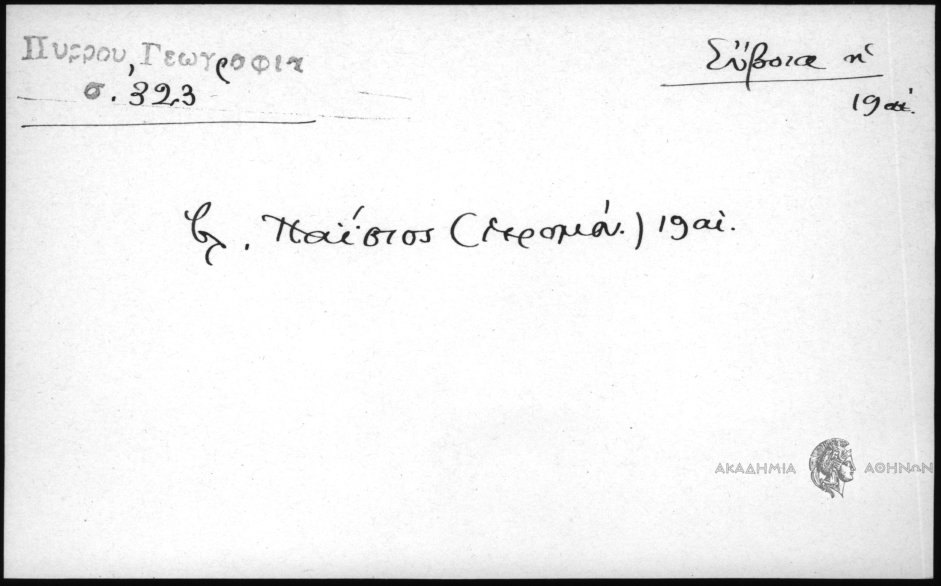 Πυρρου, Γεωγραφια
σ. 323
Σύβοια ἡ
19 αἰ.
βλ. Παΐσιος (ἱερομόν.) 19 αἰ.
ΑΚΑΔΗΜΙΑ ΑΘΗΝΩΝ